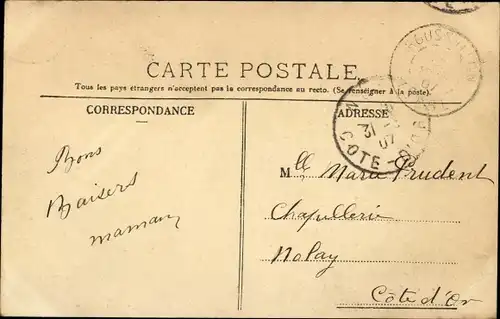 CARTE POSTALE
Tous les pays étrangers n'acceptent pas la correspondance au recto. (Se renseigner à la poste).
CORRESPONDANCE
ADRESSE
31
07
COTE-D'OR
Bons
Baisers
maman
Mlle Maria Prudent
Chapellerie
Nolay
Côte d'Or